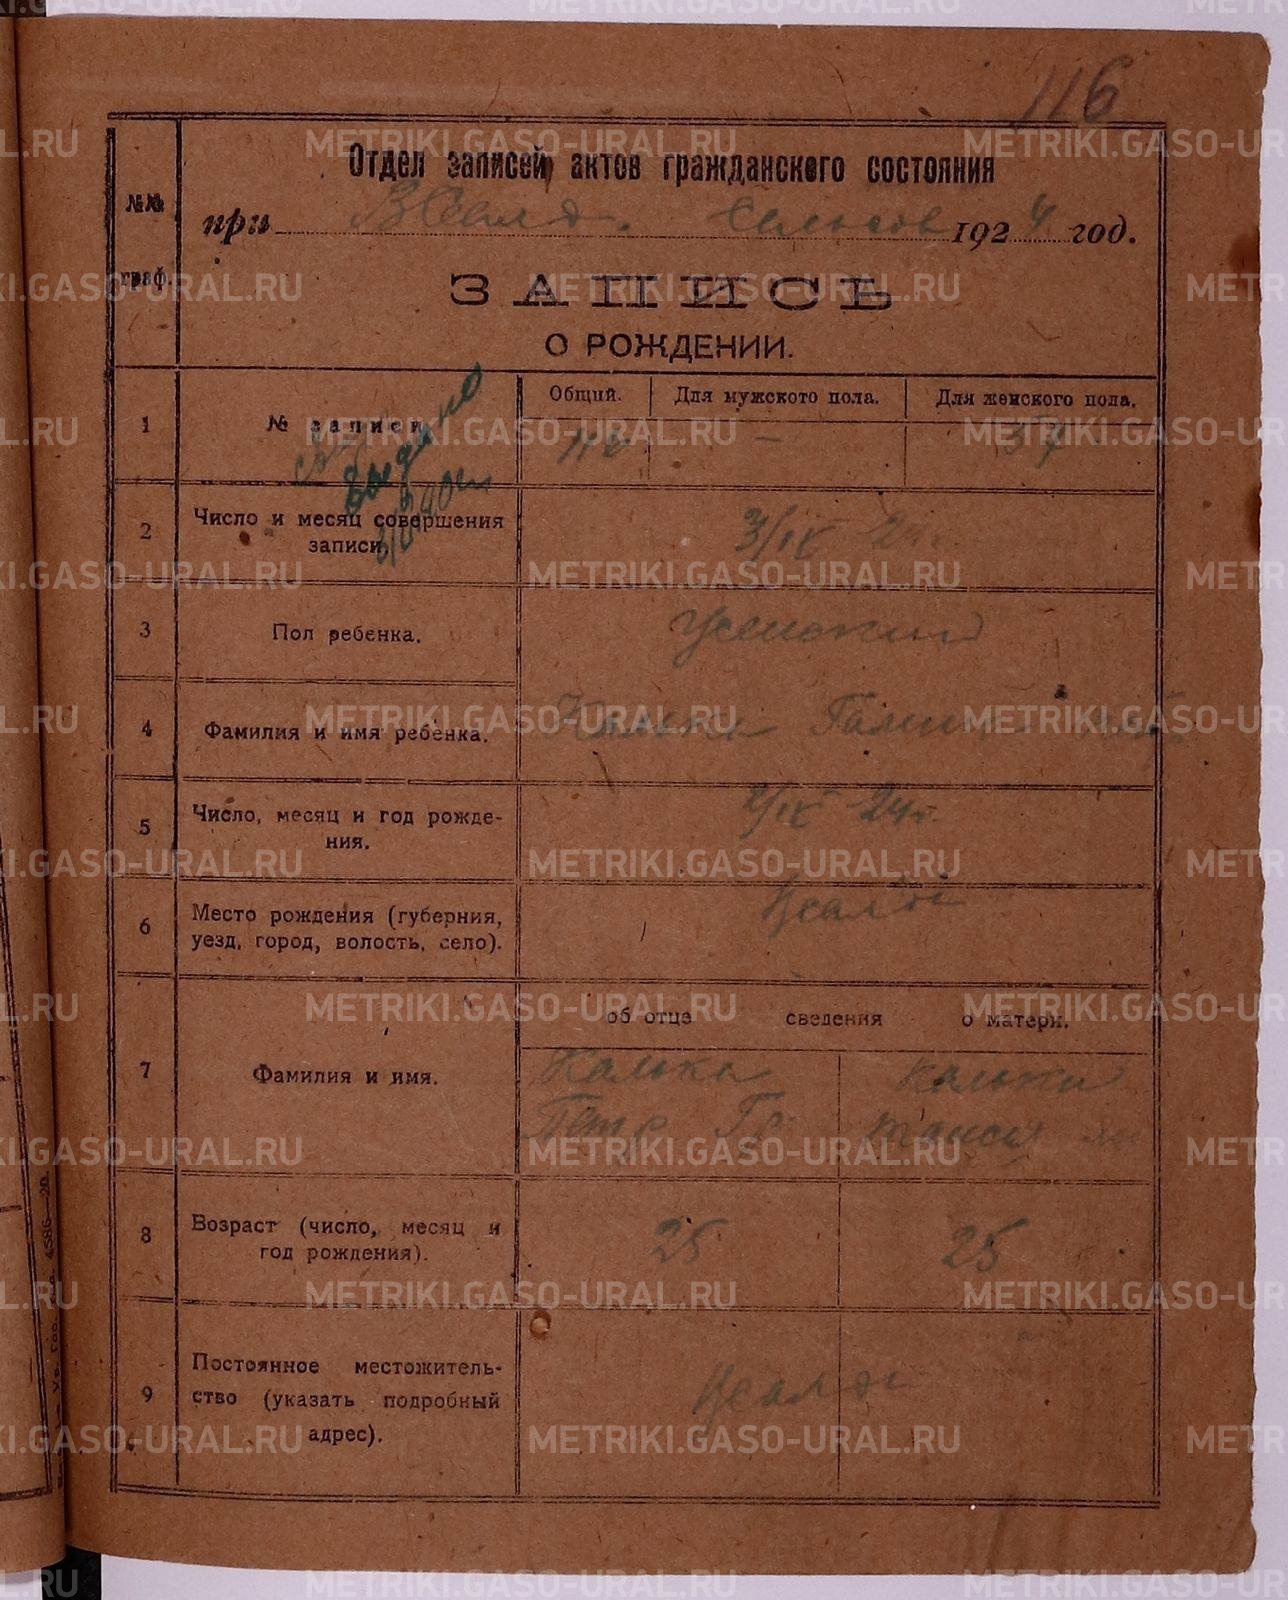 116
Отдел записей актов гражданского состояния
№№ граф.
при ВСалд. сельсов 1924 год.
ЗАПИСЬ
О РОЖДЕНИИ.
1 № записи Общий. Для мужского пола. Для женского пола.
116 - 57
Выдано
2 Число и месяц совершения
записи. 3/IX 24
3 Пол ребенка. Женский
4 Фамилия и имя ребенка.
5 Число, месяц и год рожде-
ния. 2/IX 24г.
6 Место рождения (губерния,
уезд, город, волость, село).
об отце сведения о матери.
7 Фамилия и имя.
Калька
Петр Гр. Таисья
8 Возраст (число, месяц и
год рождения). 25 25
9 Постоянное местожитель-
ство (указать подробный
адрес).
METRIKI.GASO-URAL.RU